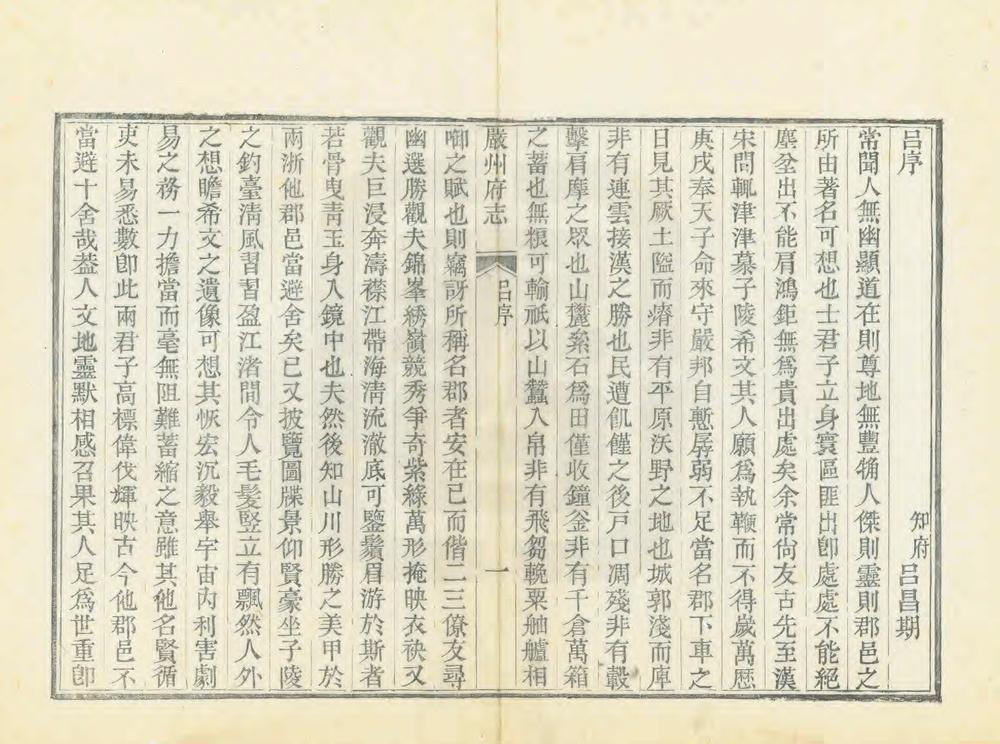 呂序
知府呂昌期
常聞人無幽顯道在則尊地無豐瘠人傑則靈則郡邑之
所由著名可想也士君子立身寰區匪出卽處處不能絕
塵坌出不能肩鴻鉅無爲貴出處矣余常尙友古先至漢
宋問輒津津慕子陵希文其人願爲執鞭而不得歲萬厯
庚戌奉天子命來守嚴邦自慙孱弱不足當名郡下車之
日見其厥土隘而瘠非有平原沃野之地也城郭淺而庳
非有連雲接漢之勝也民遭飢饉之後戸口凋殘非有轂
擊肩摩之眾也山叢絫石爲田僅收鐘釜非有千倉萬箱
之蓄也無粮可輸祇以山蠶入帛非有飛芻輓粟舳艫相
嚴州府志
呂序
一
啣之賦也則竊訝所稱名郡者安在已而偕二三僚友尋
幽選勝觀夫錦峯綉嶺競秀爭奇紫綠萬形掩映衣袂又
觀夫巨浸奔濤襟江帶海淸流澈底可鑒鬚眉游於斯者
若骨曳靑玉身入鏡中也夫然後知山川形勝之美甲於
兩浙他郡邑當避舍矣已又披覽圖牒景仰賢豪坐子陵
之釣臺淸風習習盈江渚間令人毛髮竪立有飄然人外
之想瞻希文之遺像可想其恢宏沉毅舉宇宙內利害劇
易之務一力擔當而毫無阻難蓄縮之意雖其他名賢循
吏未易悉數卽此兩君子高標偉伐輝映古今他郡邑不
當避十舍哉葢人文地靈默相感召果其人足爲世重卽